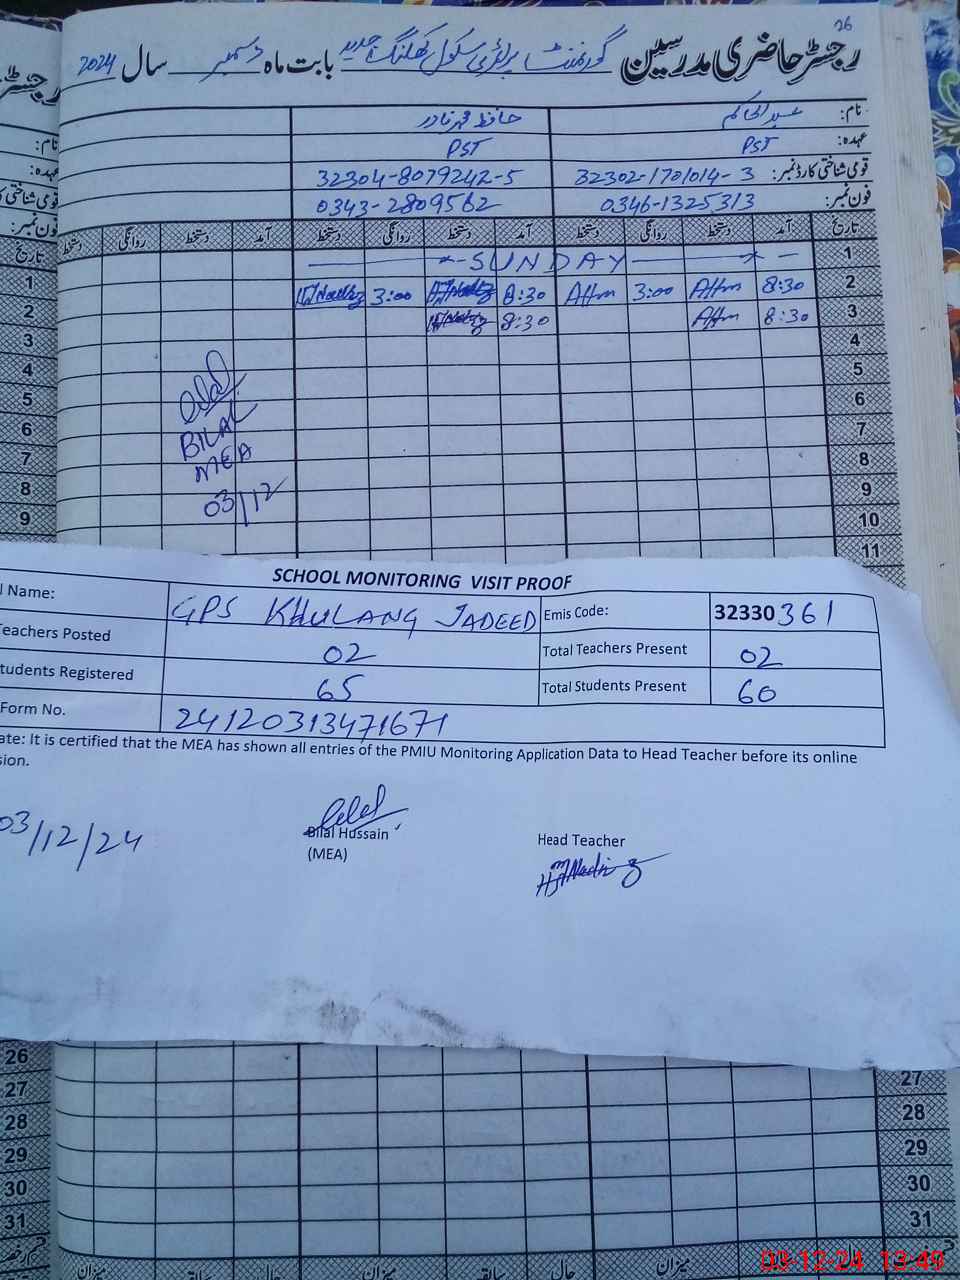 26
رجسٹر حاضری مدرسین گورنمنٹ پرائمری سکول کھلنگ جدید بابت ماہ دسمبر سال 2024
نام: عبدالحاکم حافظ محمد نادر
عہدہ: PST PST
قومی شناختی کارڈ نمبر: 32302-1701014-3 32304-8079242-5
فون نمبر: 0346-1325313 0343-2809562
تاریخ آمد دستخط روانگی دستخط آمد دستخط روانگی دستخط آمد دستخط روانگی دستخط
1 SUNDAY
2 8:30 AHm 3:00 AHm 8:30 3:00
3 8:30 AHm 8:30
4
5
6
7
8
9
10
11
BILAL
MEA
03/12
SCHOOL MONITORING VISIT PROOF
l Name: GPS KHULANG JADEED Emis Code: 32330361
Teachers Posted 02 Total Teachers Present 02
tudents Registered 65 Total Students Present 60
Form No. 24120313471671
ate: It is certified that the MEA has shown all entries of the PMIU Monitoring Application Data to Head Teacher before its online
sion.
03/12/24
Bilal Hussain
(MEA)
Head Teacher
27
28
29
30
31
میزان
03-12-24 13:49